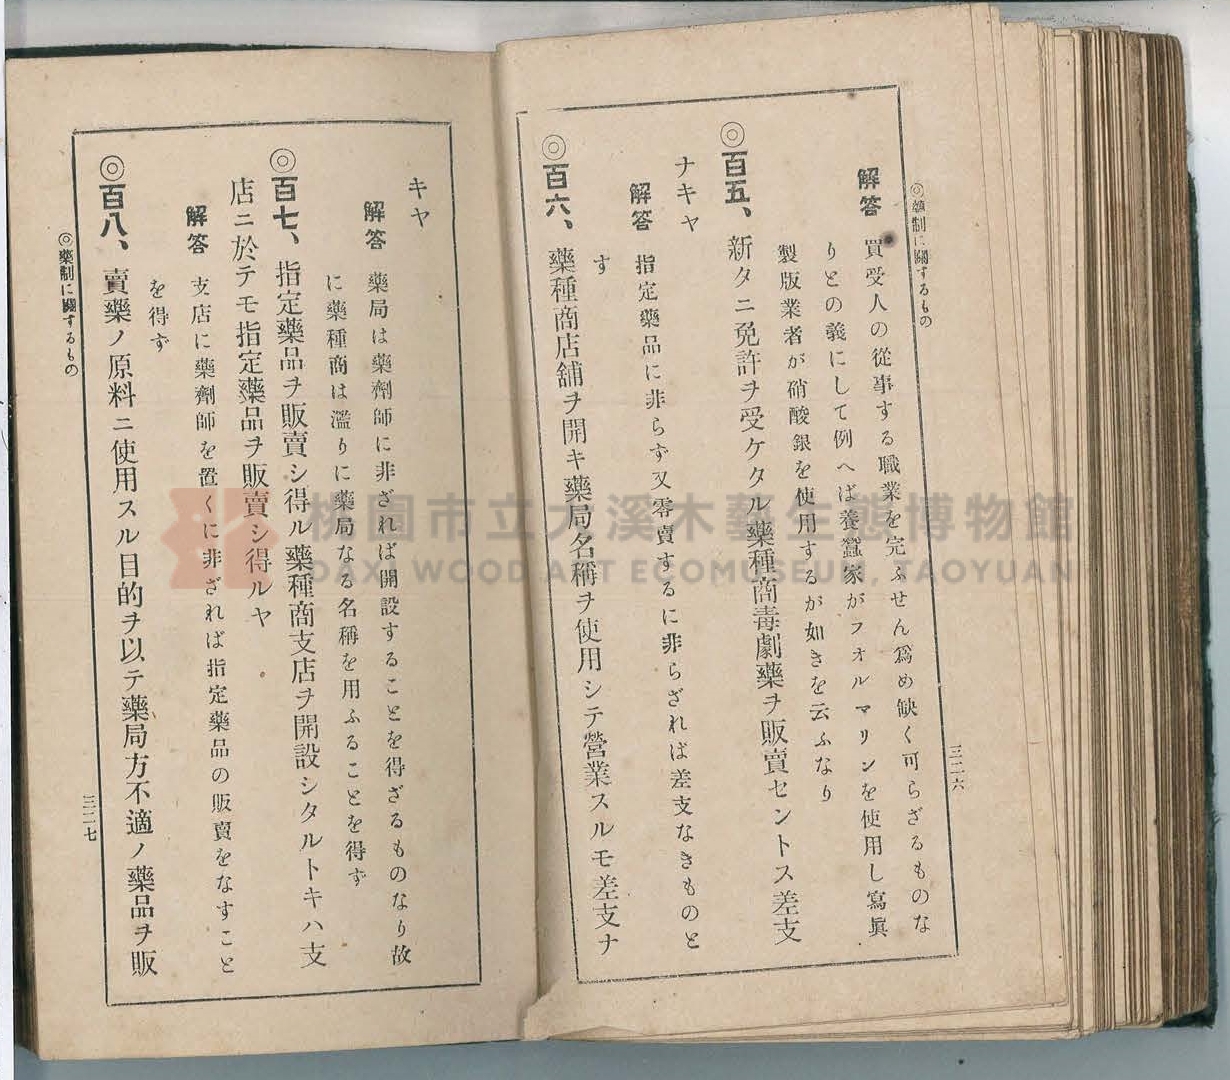 ◎藥制に關するもの
三二六
解答 買受人の從事する職業を完ふせん爲め缺く可らざるものな
りとの義にして例へば養蠶家がフオルマリンを使用し寫眞
製版業者が硝酸銀を使用するが如きを云ふなり
◎百五、新タニ免許ヲ受ケタル藥種商毒劇藥ヲ販賣セントス差支
ナキヤ
解答 指定藥品に非らず又零賣するに非らざれば差支なきものと
す
◎百六、藥種商店舖ヲ開キ藥局名稱ヲ使用シテ營業スルモ差支ナ
キヤ
解答 藥局は藥劑師に非ざれば開設することを得ざるものなり故
に藥種商は濫りに藥局なる名稱を用ふることを得ず
◎百七、指定藥品ヲ販賣シ得ル藥種商支店ヲ開設シタルトキハ支
店ニ於テモ指定藥品ヲ販賣シ得ルヤ
解答 支店に藥劑師を置くに非ざれば指定藥品の販賣をなすこと
を得ず
◎百八、賣藥ノ原料ニ使用スル目的ヲ以テ藥局方不適ノ藥品ヲ販
◎藥制に關するもの
三二七
桃園市立大溪木藝生態博物館
DAXI WOOD ART ECOMUSEUM, TAOYUAN